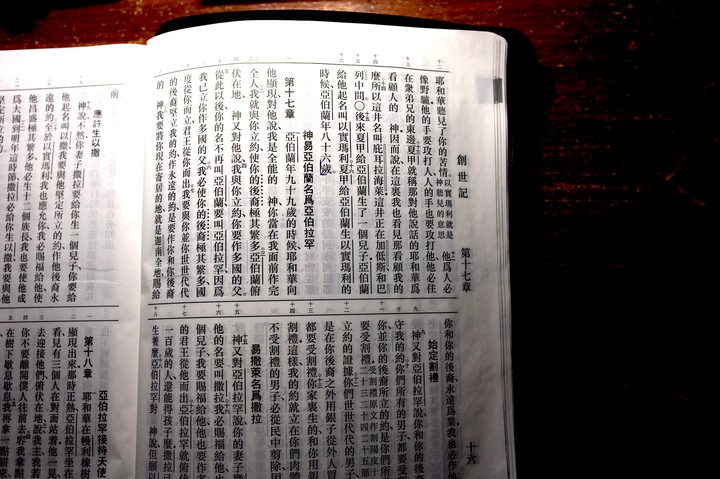 創世記
第十七章
十六
耶和華聽見了你的苦情以實瑪利就是神聽見的意思他爲人必
像野驢他的手要攻打人人的手也要攻打他他必住
在衆弟兄的東邊夏甲就稱那對他說話的耶和華爲
看顧人的 神因而說在這裏我也看見那看顧我的
麼所以這井名叫庇耳拉海萊這井正在加低斯和巴
列中間○後來夏甲給亞伯蘭生了一個兒子亞伯蘭
給他起名叫以實瑪利夏甲給亞伯蘭生以實瑪利的
時候亞伯蘭年八十六歲
神易亞伯蘭名爲亞伯拉罕
第十七章 亞伯蘭年九十九歲的時候耶和華向
他顯現對他說我是全能的 神你當在我面前作完
全人我就與你立約使你的後裔極其繁多亞伯蘭俯
伏在地 神又對他說我與你立約你要作多國的父
從此以後你的名不再叫亞伯蘭要叫亞伯拉罕因爲
我已立你作多國的父我必使你的後裔極其繁多國
度從你而立君王從你而出我要與你並你世世代代
的後裔堅立我的約作永遠的約是要作你和你後裔
的 神我要將你現在寄居的地就是迦南全地賜給
你和你的後裔永遠爲業我也必作他
始定割禮
神又對亞伯拉罕說你和你的後裔
守我的約你們所有的男子都要受
你並你的後裔所立的約是你們所
要受割禮受割禮原文作割陽皮十四二十三二十四二十五節
立約的證據你們世世代代的男子
在你後裔之外用銀子從外人買
都要受割禮你家裏生的和你用銀
割禮這樣我的約就立在你們肉體
不受割禮的男子必從民中剪除因
易撒萊名爲撒拉
神又對亞伯拉罕說你的妻子
他的名要叫撒拉我必賜福給他
個兒子我要賜福給他他也要作多
的君王從他而出亞伯拉罕就俯伏
一百歲的人還能得孩子麼撒拉已
生養麼亞伯拉罕對 神說但願以
前
應許生以撒
神說不然你妻子撒拉要給你生一個兒子你要給
他起名叫以撒我要與他堅定所立的約作他後裔永
遠的約至於以實瑪利我也應允你我必賜福給他使
他昌盛極其繁多他必生十二個族長我也要使他成
爲大國到明年這時節撒拉必給你生以撒我要與他
堅定所立的約
亞伯拉罕接待天使
第十八章 耶和華在幔利橡樹
顯現出來那時正熱亞伯拉罕坐在
看見有三個人在對面站着他一見
去迎接他們俯伏在地說我主我若
你不要離開僕人往前去容我拿點
在樹下歇息歇息我再拿一點餅來